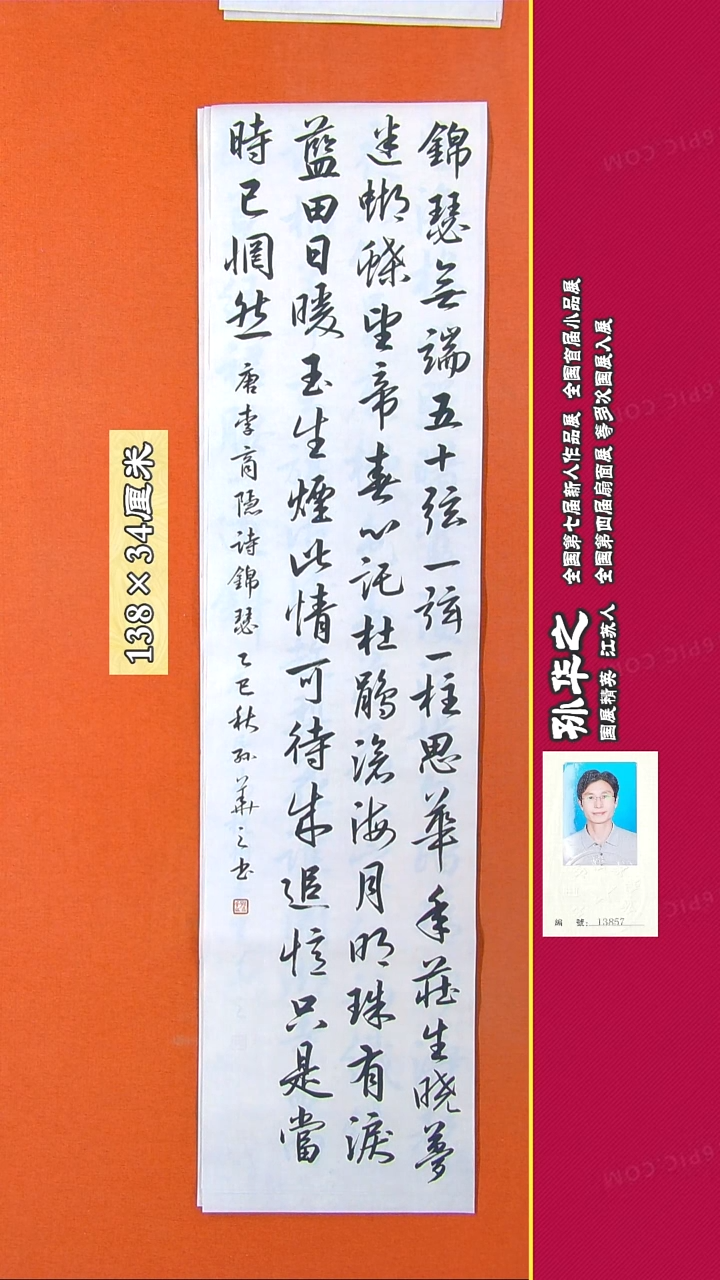 錦瑟無端五十弦一弦一柱思華年莊生曉夢
迷蝴蝶望帝春心託杜鵑滄海月明珠有淚
藍田日暖玉生煙此情可待成追憶只是當
時已惘然 唐李商隱詩錦瑟 乙巳秋孫華之書
138×34厘米
孙华之
國展精英 江苏人
全國第七届新人作品展 全國首届小品展
全國第四届扇面展等多次國展入展
編 號: 13857
6PIC.COM
6PIC.COM
6PIC.COM
6PIC.COM